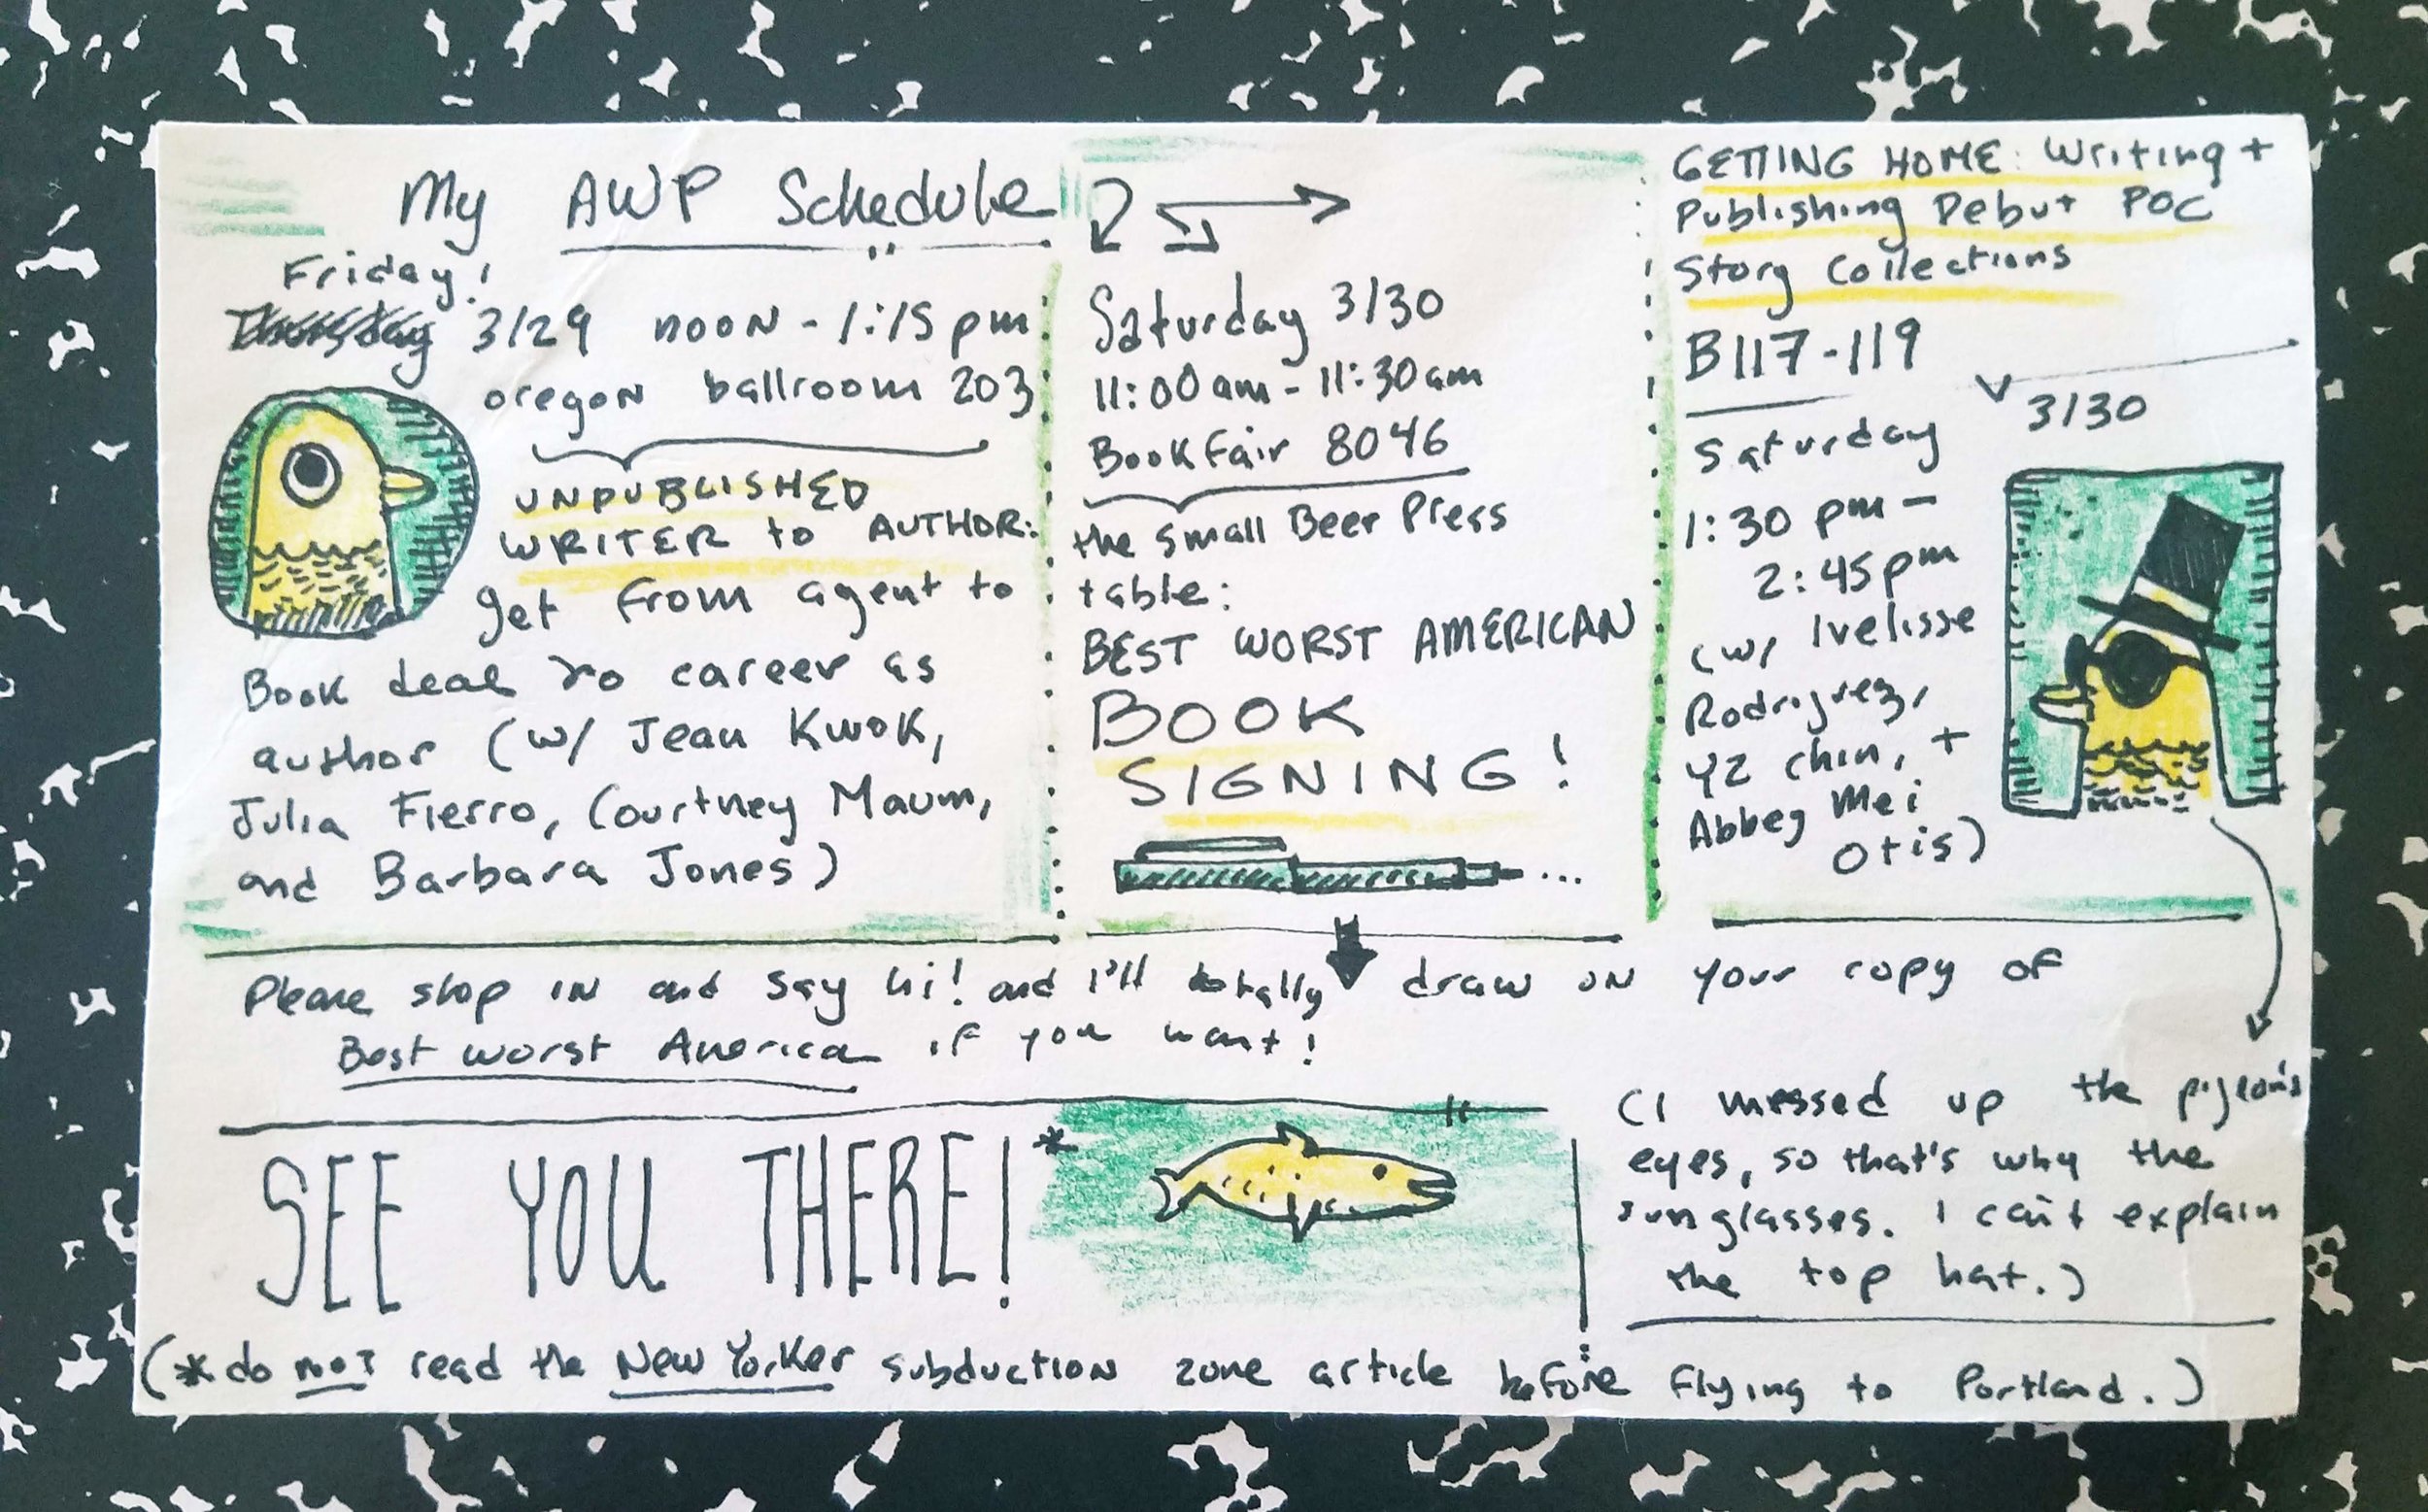 My AWP Schedule
Friday!
Thursday 3/29 noon - 1:15 pm
oregon ballroom 203
UNPUBLISHED
WRITER to AUTHOR:
get from agent to
Book deal to career as
author (w/ Jean Kwok,
Julia Fierro, Courtney Maum,
and Barbara Jones)
Saturday 3/30
11:00am - 11:30am
BookFair 8046
the Small Beer Press
table:
BEST WORST AMERICAN
BOOK
SIGNING!
...
GETTING HOME: Writing +
Publishing Debut POC
Story Collections
B117-119
3/30
Saturday
1:30 pm -
2:45pm
(w/ Ivelisse
Rodriguez,
YZ Chin, +
Abbey Mei
Otis)
Please stop in and say hi! and I'll totally draw on your copy of
Best Worst America if you want!
SEE YOU THERE!*
(I messed up the pigeon's
eyes, so that's why the
sunglasses. I can't explain
the top hat.)
(*do not read the New Yorker subduction zone article before flying to Portland.)